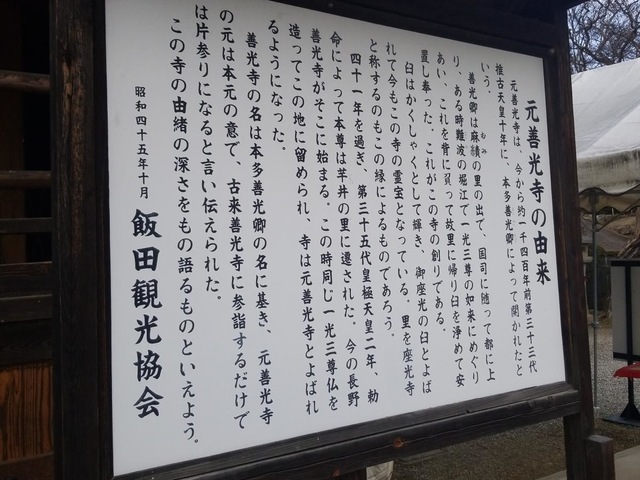 元善光寺の由来
元善光寺は、今から約一千四百年前第三十三代
推古天皇十年に、本多善光卿によって開かれたと
いう。
善光卿は麻績の里の出で、国司に随って都に上
むみ
り、ある時難波の堀江で一光三尊の如来にめぐり
あい、これを背に負って故里に帰り臼を浄めて安
置し奉った。これがこの寺の創りである。
臼はかくしゃくとして輝き、御座光の臼とよば
れて今もこの寺の霊宝となっている。里を座光寺
と称するのもこの縁によるものであろう。
四十一年を過ぎ、第三十五代皇極天皇二年、勅
命によって本尊は芋井の里に遷された。今の長野
善光寺がそこに始まる。この時同じ一光三尊仏を
造ってこの地に留められ、寺は元善光寺とよばれ
るようになった。
善光寺の名は本多善光卿の名に基き、元善光寺
の元は本元の意で、古来善光寺に参詣するだけで
は片参りになると言い伝えられた。
この寺の由緒の深さをもの語るものといえよう。
昭和四十五年十月
飯田観光協会